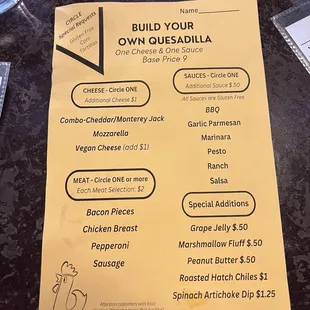 CIRCLE
Special Requests
Gluten Free
Corn
Tortillas
Name
BUILD YOUR
OWN QUESADILLA
One Cheese & One Sauce
Base Price 9
CHEESE - Circle ONE
Additional Cheese $1
Combo-Cheddar/Monterey Jack
Mozzarella
Vegan Cheese (add $1)
MEAT - Circle ONE or more
Each Meat Selection. $2
Bacon Pieces
Chicken Breast
Pepperoni
Sausage
SAUCES - Circle ONE
Additional Sauce $.50
All Sauces are Gluten Free
BBQ
Garlic Parmesan
Marinara
Pesto
Ranch
Salsa
Special Additions
Grape Jelly $.50
Marshmallow Fluff $.50
Peanut Butter $.50
Roasted Hatch Chiles $1
Spinach Artichoke Dip $1.25
Attention customers with food